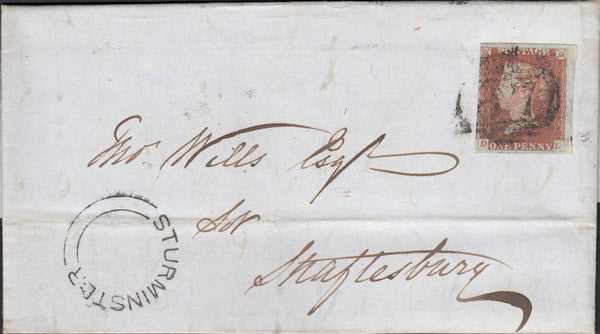 POSTAGE
D
ONE PENNY
Thos. Wills Esqr
Shaftesbury
STURMINSTER